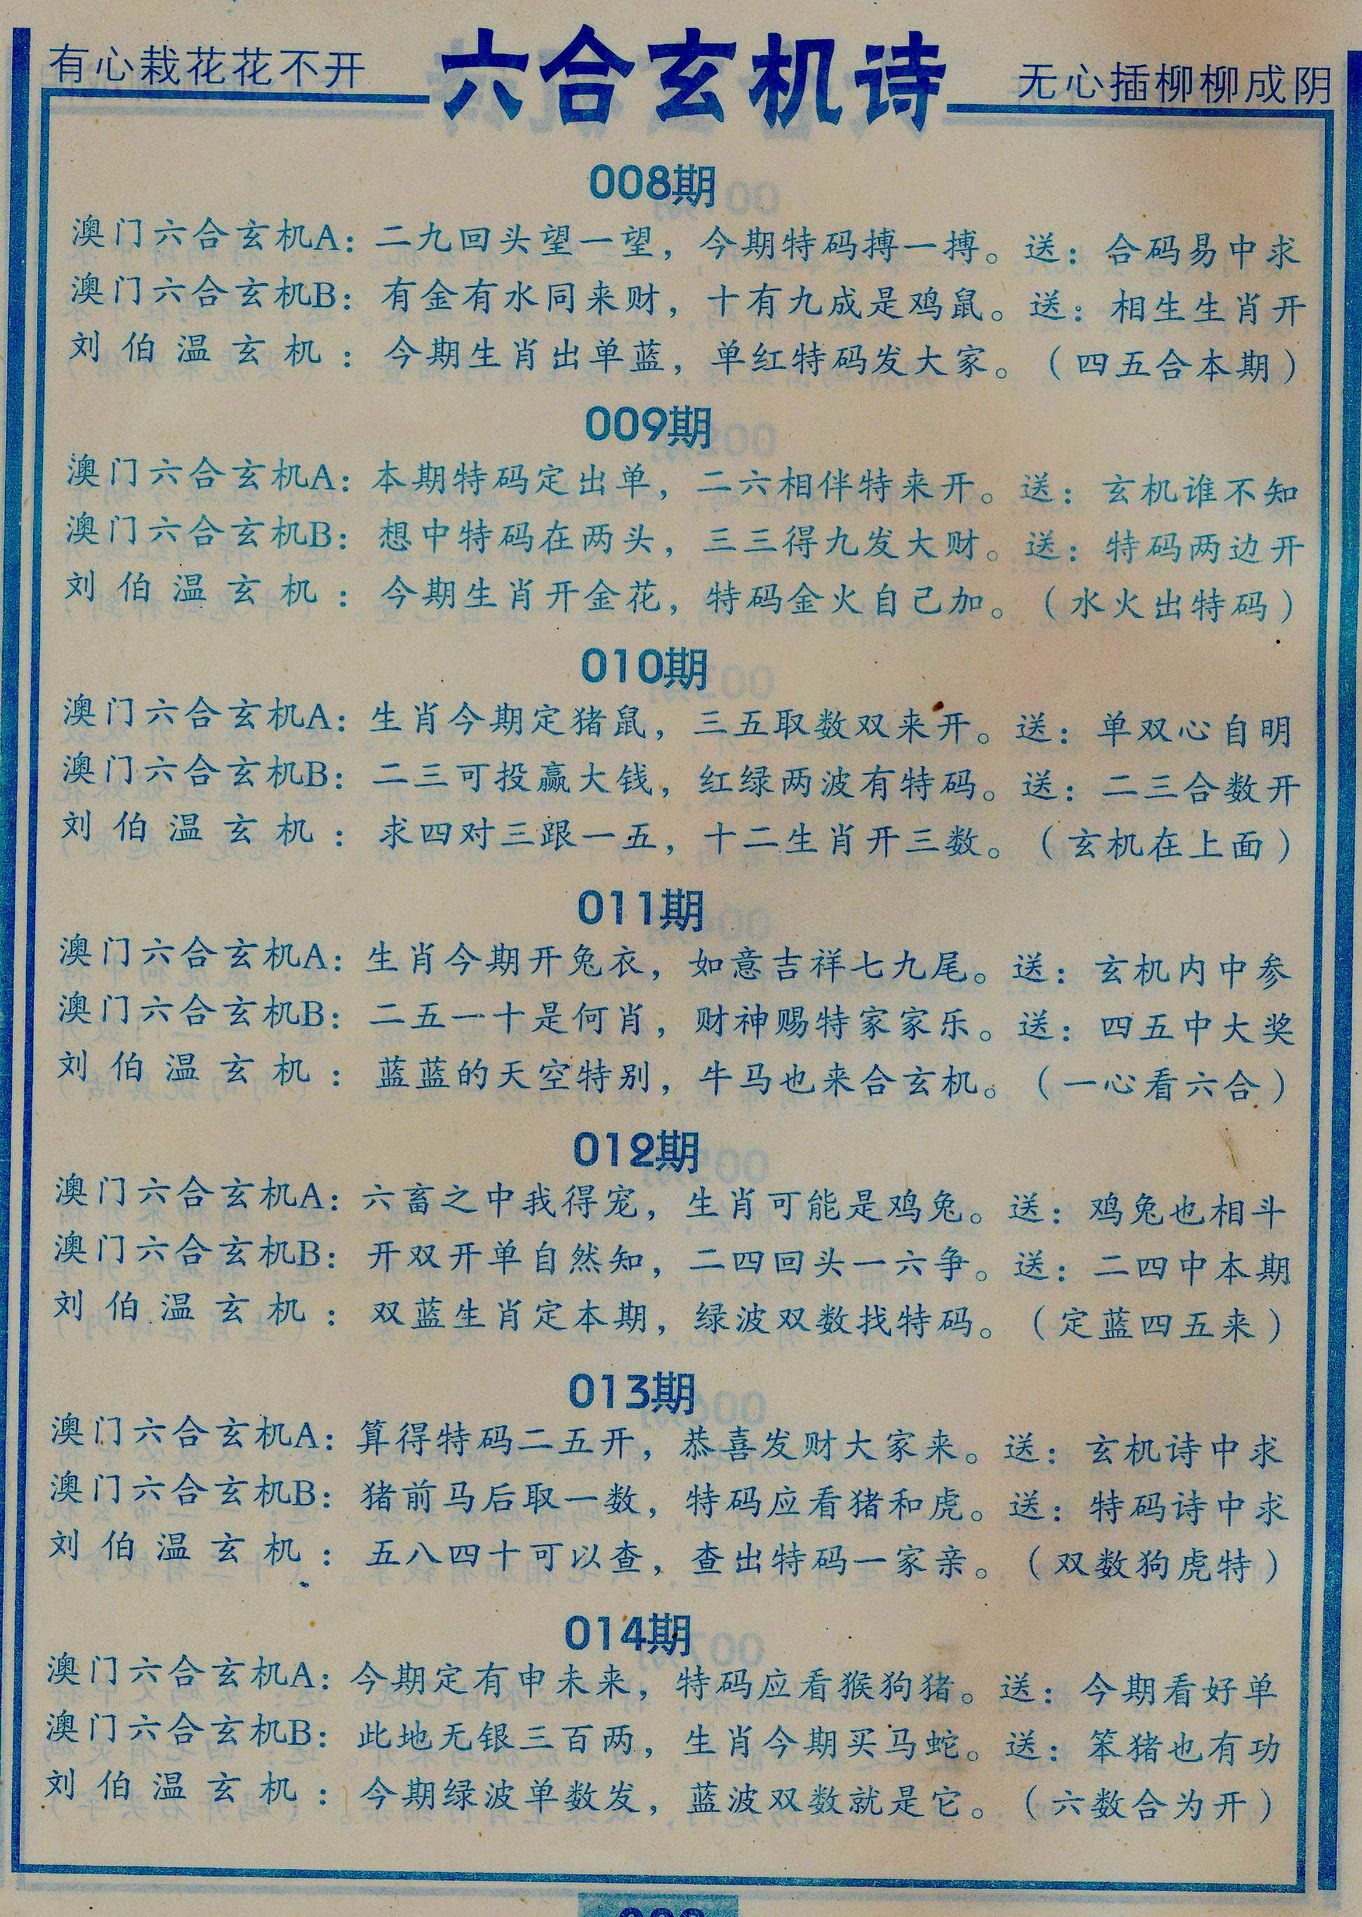 有心栽花花不开
六合玄机诗
无心插柳柳成阴
008期
澳门六合玄机A：二九回头望一望，今期特码搏一搏。送：合码易中求
澳门六合玄机B：有金有水同来财，十有九成是鸡鼠。送：相生生肖开
刘伯温玄机：今期生肖出单蓝，单红特码发大家。（四五合本期）
009期
澳门六合玄机A：本期特码定出单，二六相伴特来开。送：玄机谁不知
澳门六合玄机B：想中特码在两头，三三得九发大财。送：特码两边开
刘伯温玄机：今期生肖开金花，特码金火自己加。（水火出特码）
010期
澳门六合玄机A：生肖今期定猪鼠，三五取数双来开。送：单双心自明
澳门六合玄机B：二三可投赢大钱，红绿两波有特码。送：二三合数开
刘伯温玄机：求四对三跟一五，十二生肖开三数。（玄机在上面）
011期
澳门六合玄机A：生肖今期开兔衣，如意吉祥七九尾。送：玄机内中参
澳门六合玄机B：二五一十是何肖，财神赐特家家乐。送：四五中大奖
刘伯温玄机：蓝蓝的天空特别，牛马也来合玄机。（一心看六合）
012期
澳门六合玄机A：六畜之中我得宠，生肖可能是鸡兔。送：鸡兔也相斗
澳门六合玄机B：开双开单自然知，二四回头一六争。送：二四中本期
刘伯温玄机：双蓝生肖定本期，绿波双数找特码。（定蓝四五来）
013期
澳门六合玄机A：算得特码二五开，恭喜发财大家来。送：玄机诗中求
澳门六合玄机B：猪前马后取一数，特码应看猪和虎。送：特码诗中求
刘伯温玄机：五八四十可以查，查出特码一家亲。（双数狗虎特）
014期
澳门六合玄机A：今期定有申未来，特码应看猴狗猪。送：今期看好单
澳门六合玄机B：此地无银三百两，生肖今期买马蛇。送：笨猪也有功
刘伯温玄机：今期绿波单数发，蓝波双数就是它。（六数合为开）